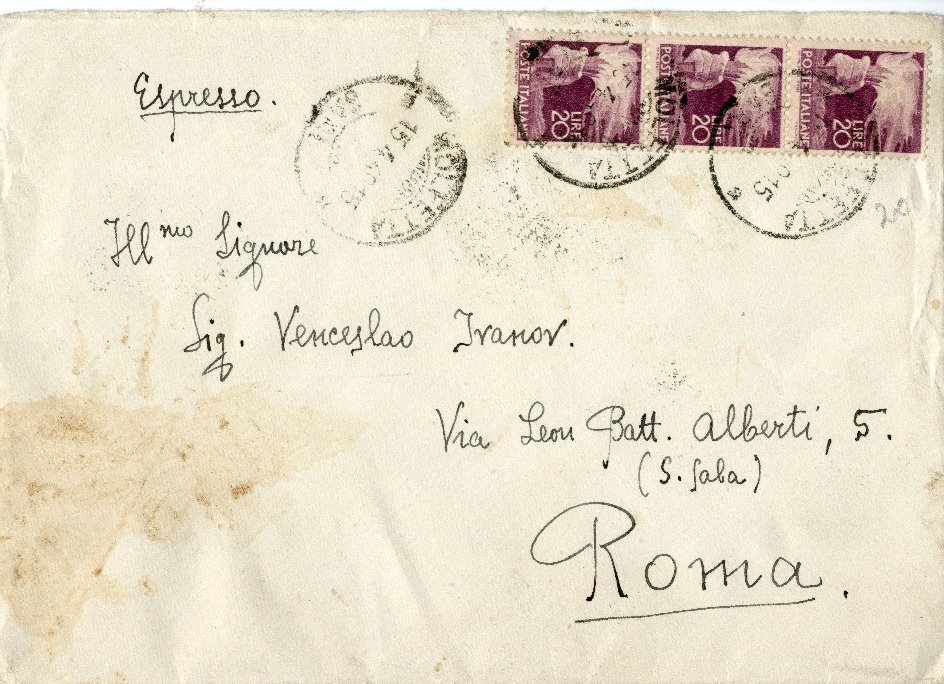 Espresso.
POSTE ITALIANE
LIRE 20
POSTE ITALIANE
LIRE 20
POSTE ITALIANE
LIRE 20
MOLFETTA
MOLFETTA
Ill mo Signore
Sig. Venceslao Ivanov.
Via Leon Batt. Alberti, 5.
(S. Saba)
Roma.